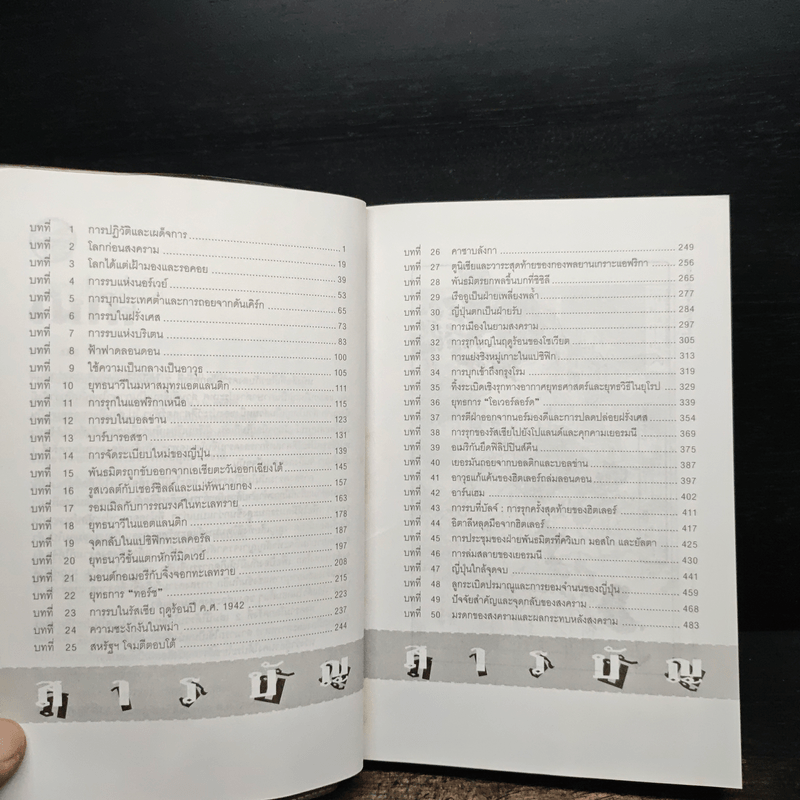 บทที่ 1 การปฏิวัติและเผด็จการ 1
บทที่ 2 โลกก่อนสงคราม 19
บทที่ 3 โลกได้แต่เฝ้ามองและรอคอย 39
บทที่ 4 การรบแห่งนอร์เวย์ 53
บทที่ 5 การบุกประเทศต่ำและการถอยจากดันเคิร์ก 65
บทที่ 6 การรบในฝรั่งเศส 73
บทที่ 7 การรบแห่งบริเตน 83
บทที่ 8 ฟ้าฟาดลอนดอน 100
บทที่ 9 ใช้ความเป็นกลางเป็นอาวุธ 105
บทที่ 10 ยุทธนาวีในมหาสมุทรแอตแลนติก 111
บทที่ 11 การรุกในแอฟริกาเหนือ 115
บทที่ 12 การรบในบอลข่าน 123
บทที่ 13 บาร์บารอสซา 131
บทที่ 14 การจัดระเบียบใหม่ของญี่ปุ่น 139
บทที่ 15 พันธมิตรถูกขับออกจากเอเชียตะวันออกเฉียงใต้ 145
บทที่ 16 รูสเวลต์กับเชอร์ชิลล์และแม่ทัพนายกอง 157
บทที่ 17 รอมเมิลกับการรณรงค์ในทะเลทราย 163
บทที่ 18 ยุทธนาวีในแอตแลนติก 178
บทที่ 19 จุดกลับในแปซิฟิกทะเลคอรัล 187
บทที่ 20 ยุทธนาวีขั้นแตกหักที่มิดเวย์ 197
บทที่ 21 มอนต์กอเมอรีกับจิ้งจอกทะเลทราย 208
บทที่ 22 ยุทธการ "ทอร์ช" 215
บทที่ 23 การรบในรัสเซีย ฤดูร้อนปี ค.ศ. 1942 223
บทที่ 24 ความชะงักงันในพม่า 237
บทที่ 25 สหรัฐฯ โจมตีตอบโต้ 244
สารบัญ
บทที่ 26 คาซาบลังกา 249
บทที่ 27 ตูนิเซียและวาระสุดท้ายของกองพลยานเกราะแอฟริกา 256
บทที่ 28 พันธมิตรยกพลขึ้นบกที่ซิซิลี 265
บทที่ 29 เรืออูเป็นฝ่ายเพลี่ยงพล้ำ 277
บทที่ 30 ญี่ปุ่นตกเป็นฝ่ายรับ 284
บทที่ 31 การเมืองในยามสงคราม 297
บทที่ 32 การรุกใหญ่ในฤดูร้อนของโซเวียต 305
บทที่ 33 การแย่งชิงหมู่เกาะในแปซิฟิก 313
บทที่ 34 การบุกเข้าถึงกรุงโรม 319
บทที่ 35 ทิ้งระเบิดเชิงรุกทางอากาศยุทธศาสตร์และยุทธวิธีในยุโรป 329
บทที่ 36 ยุทธการ "โอเวอร์ลอร์ด" 339
บทที่ 37 การตีฝ่าออกจากนอร์มองดีและการปลดปล่อยฝรั่งเศส 354
บทที่ 38 การรุกของรัสเซียไปยังโปแลนด์และคุกคามเยอรมนี 369
บทที่ 39 อเมริกันยึดฟิลิปปินส์คืน 375
บทที่ 40 เยอรมันถอยจากบอลติกและบอลข่าน 387
บทที่ 41 อาวุธแก้แค้นของฮิตเลอร์ถล่มลอนดอน 397
บทที่ 42 อาร์นเฮม 402
บทที่ 43 การรบที่บัลจ์ : การรุกครั้งสุดท้ายของฮิตเลอร์ 411
บทที่ 44 อิตาลีหลุดมือจากฮิตเลอร์ 417
บทที่ 45 การประชุมของฝ่ายพันธมิตรที่ควิเบก มอสโก และยัลตา 425
บทที่ 46 การล่มสลายของเยอรมนี 430
บทที่ 47 ญี่ปุ่นใกล้จุดจบ 441
บทที่ 48 ลูกระเบิดปรมาณูและการยอมจำนนของญี่ปุ่น 459
บทที่ 49 ปัจจัยสำคัญและจุดกลับของสงคราม 468
บทที่ 50 มรดกของสงครามและผลกระทบหลังสงคราม 483
สารบัญ